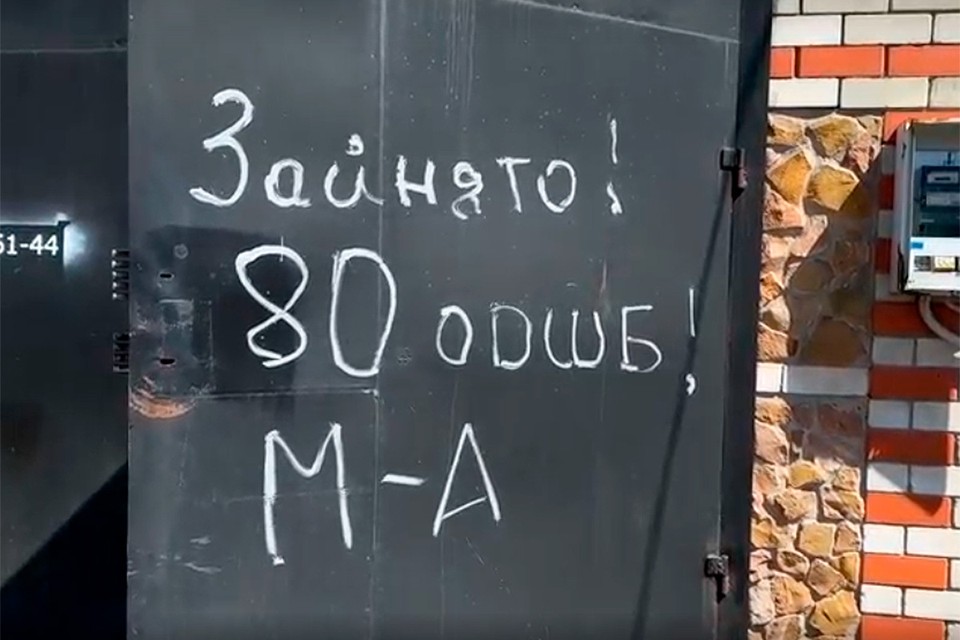 Зайнято!
61-44
80 одшб!
М-А